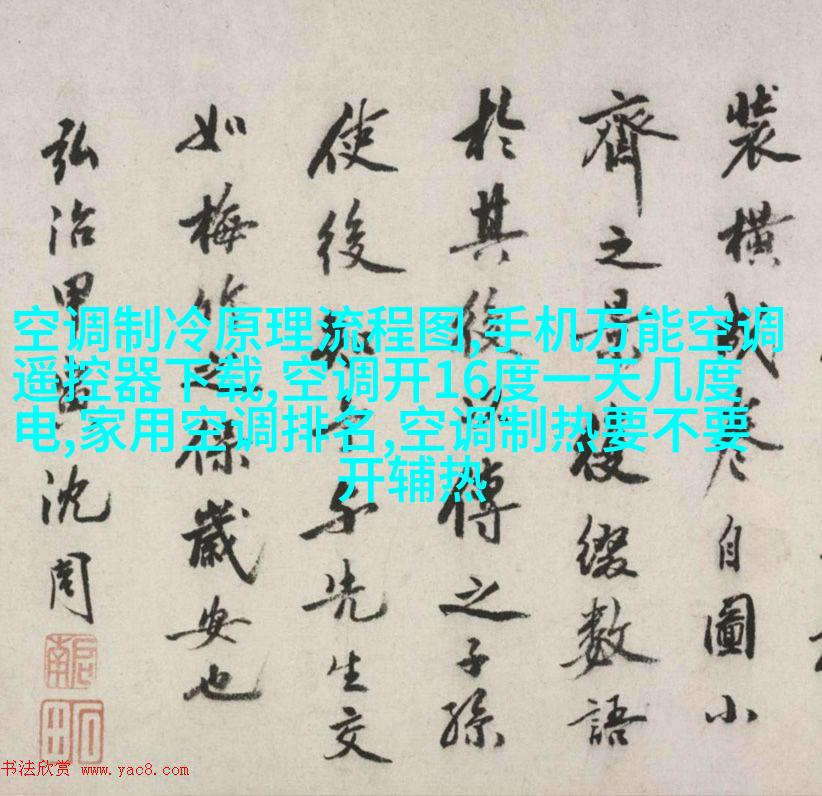 裝橫成卷自圖小
齊之景綴數語
於其後傳之子孫
使後知先生交
如梅竹保歲安也
弘治甲沈周
空调制冷原理流程图,手机万能空调
遥控器下载,空调开16度一天几度
电,家用空调排名,空调制热要不要
开辅热
书法欣赏 www.yac8.com